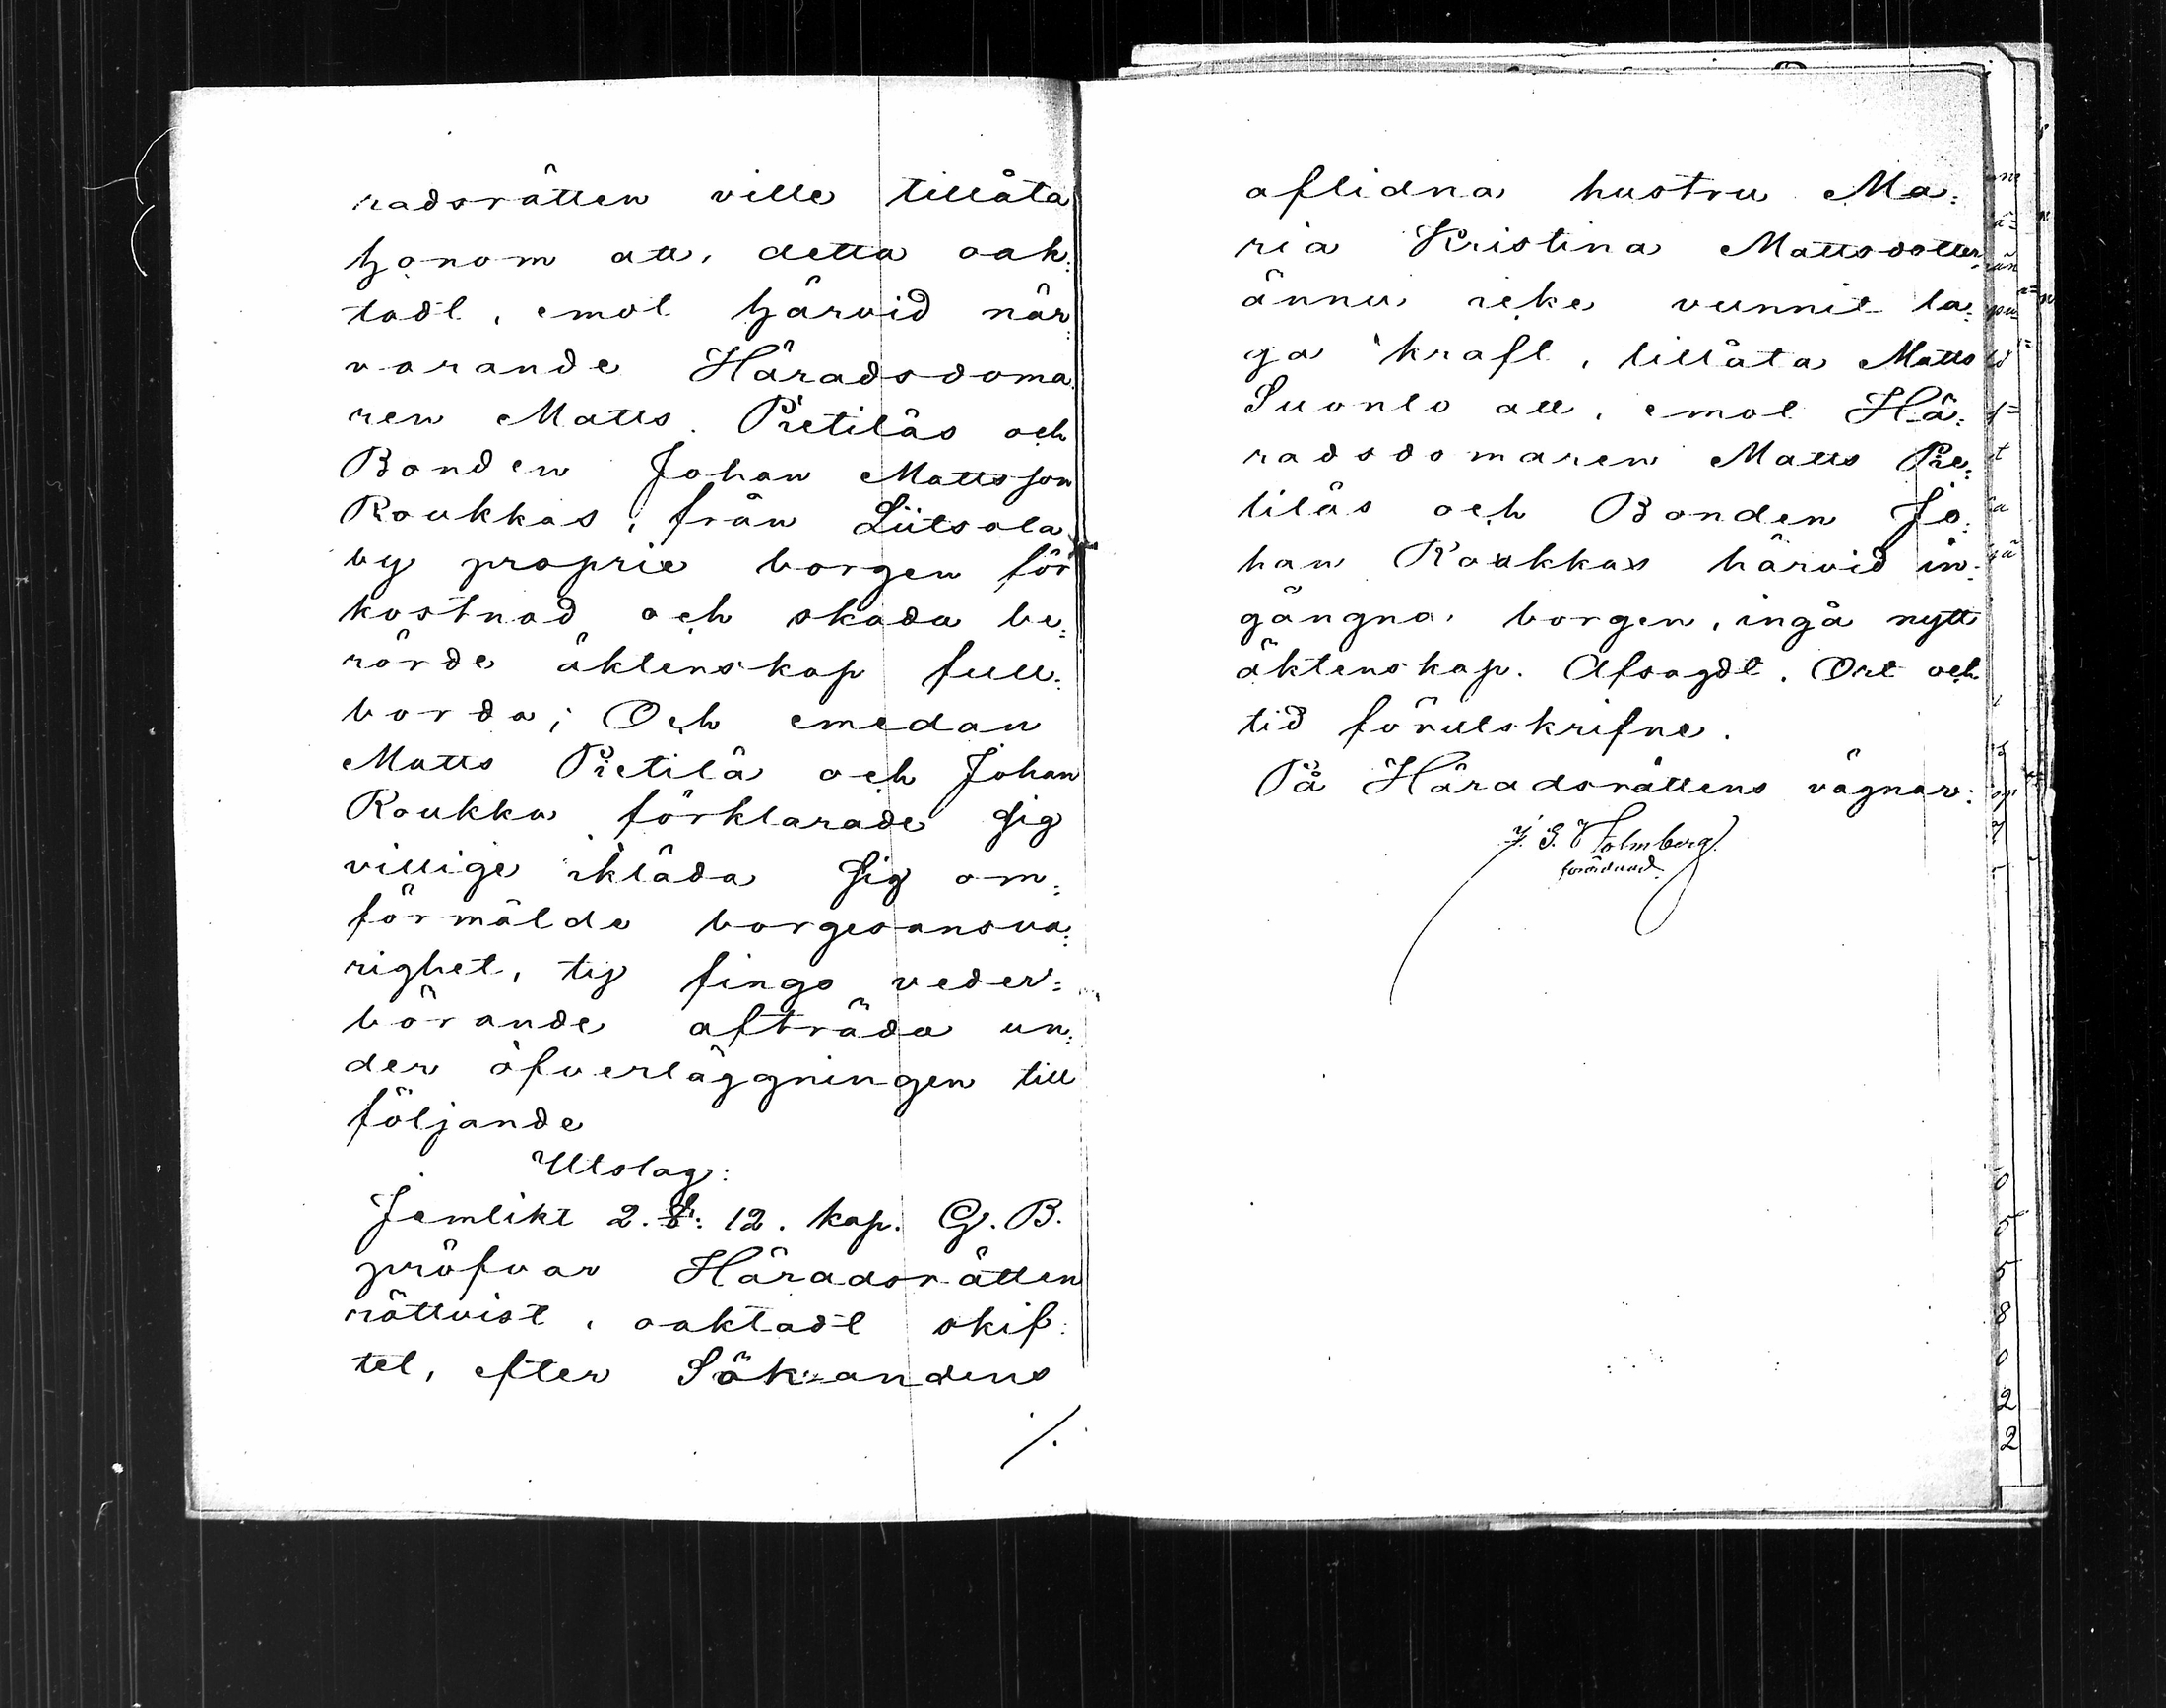 radsrätten ville tillåta
honom att, detta oak:
tadt, emot härvid när:
varande Häradsdoma:
ren Matts Pietiläs och
Bonden Johan Mattsson
Roukkas, från Liitsola
by proprie borgen för
kostnad och skada be:
rörde äktenskap full:
borda; Och emedan
Matts Pietilä och Johan
Roukka förklarade sig
villige ikläda sig om:
förmälde borgesansva:
righet, ty fingo veder:
börande afträda un:
der öfverläggningen till
följande
Utslag:
Jemlikt 2. §: 12. kap. G. B.
pröfvar Häradsrätten
rättvist, oaktadt skif:
tet, efter Sökandens
/.
aflidna hustru Ma:
ria Kristina Mattsdotter,
ännu icke vunnit la:
ga kraft, tillåta Matts
Suonto att, emot Hä:
radsdomaren Matts Pie:
tiläs och Bonden Jo:
han Roukkas härvid in:
gångna borgen, ingå nytt
äktenskap. Afsagdt. Ort och
tid förutskrifne.
På Häradsrättens vägnar:
J. G. Holmberg
förordnad.
0
5
5
8
0
2
2